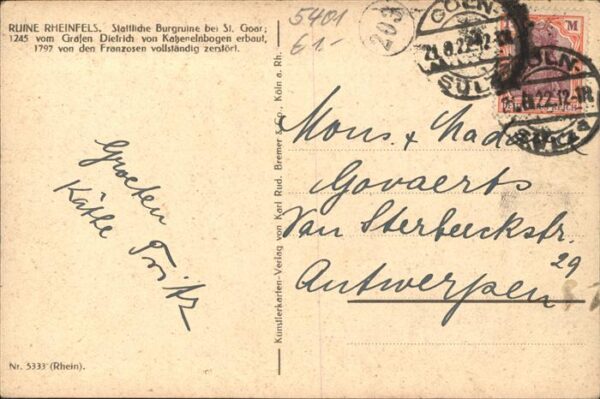 RUINE RHEINFELS. Stattliche Burgruine bei St. Goar;
1245 vom Grafen Dietrich von Katzenelnbogen erbaut,
1797 von den Franzosen vollständig zerstört.
5401
61-
203
CÖLN-
21.8.22.12-1N
SÜLZ
M
CÖLN-
8.22.12-1N
Groeten
Käthe Fritz
Künstlerkarten-Verlag von Karl Rud. Bremer & Co., Köln a. Rh.
Mons. + Madame
Govaerts
Van Sterbeeckstr.
29
Antwerpen
Nr. 5333 (Rhein).